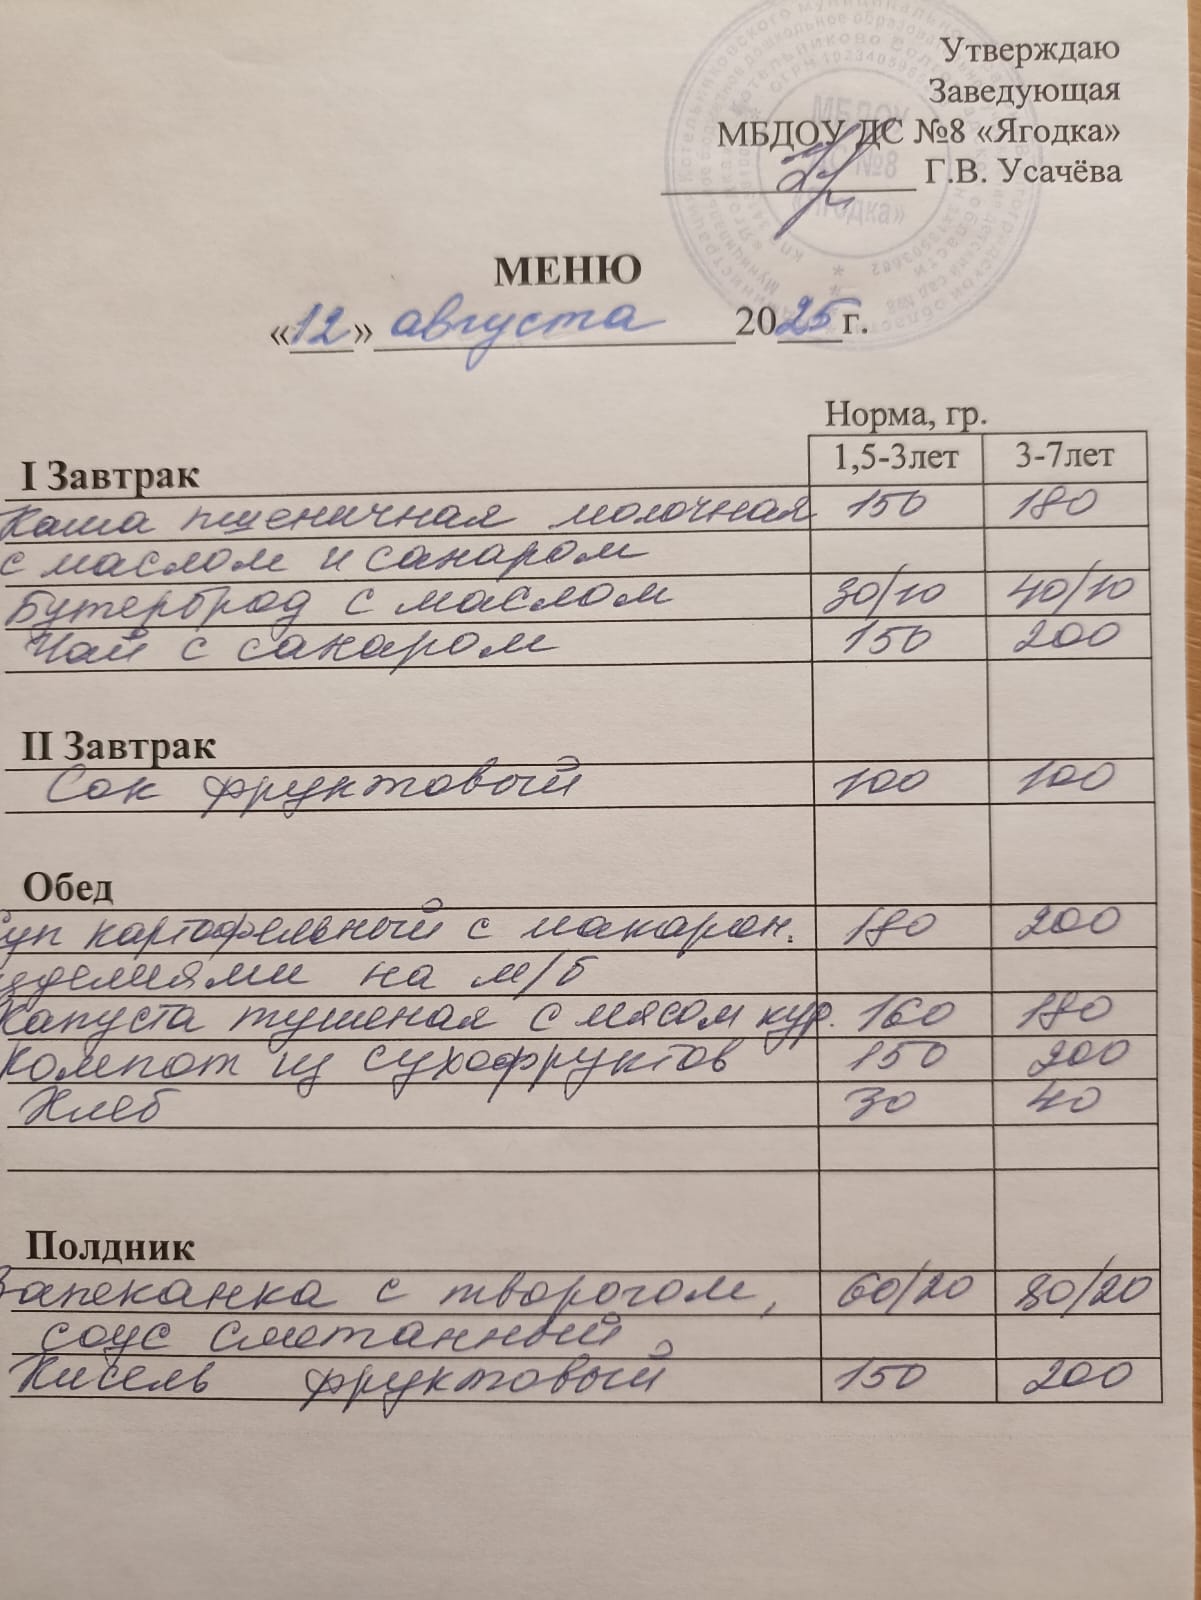 Утверждаю
Заведующая
МБДОУ ДС №8 «Ягодка»
Г.В. Усачёва
МБДОУ
ДС №8
«Ягодка»
МЕНЮ
«12» августа 2025 г.
Норма, гр.
I Завтрак 1,5-3лет 3-7лет
Каша пшеничная молочная 150 180
с маслом и сахаром
Бутерброд с маслом 30/10 40/10
Чай с сахаром 150 200
II Завтрак
Сок фруктовый 100 100
Обед
Суп картофельный с макарон. 180 200
изделиями на м/б
Капуста тушеная с мясом кур. 160 180
Компот из сухофруктов 150 200
Хлеб 30 40
Полдник
Запеканка с творогом, 60/20 80/20
соус сметанный
Кисель фруктовый 150 200